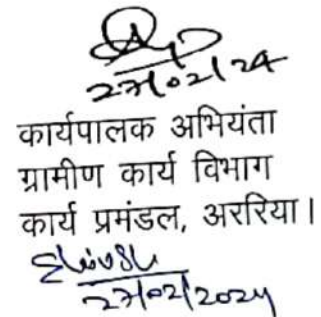 27/02/24
कार्यपालक अभियंता
ग्रामीण कार्य विभाग
कार्य प्रमंडल, अररिया।
27/02/2024